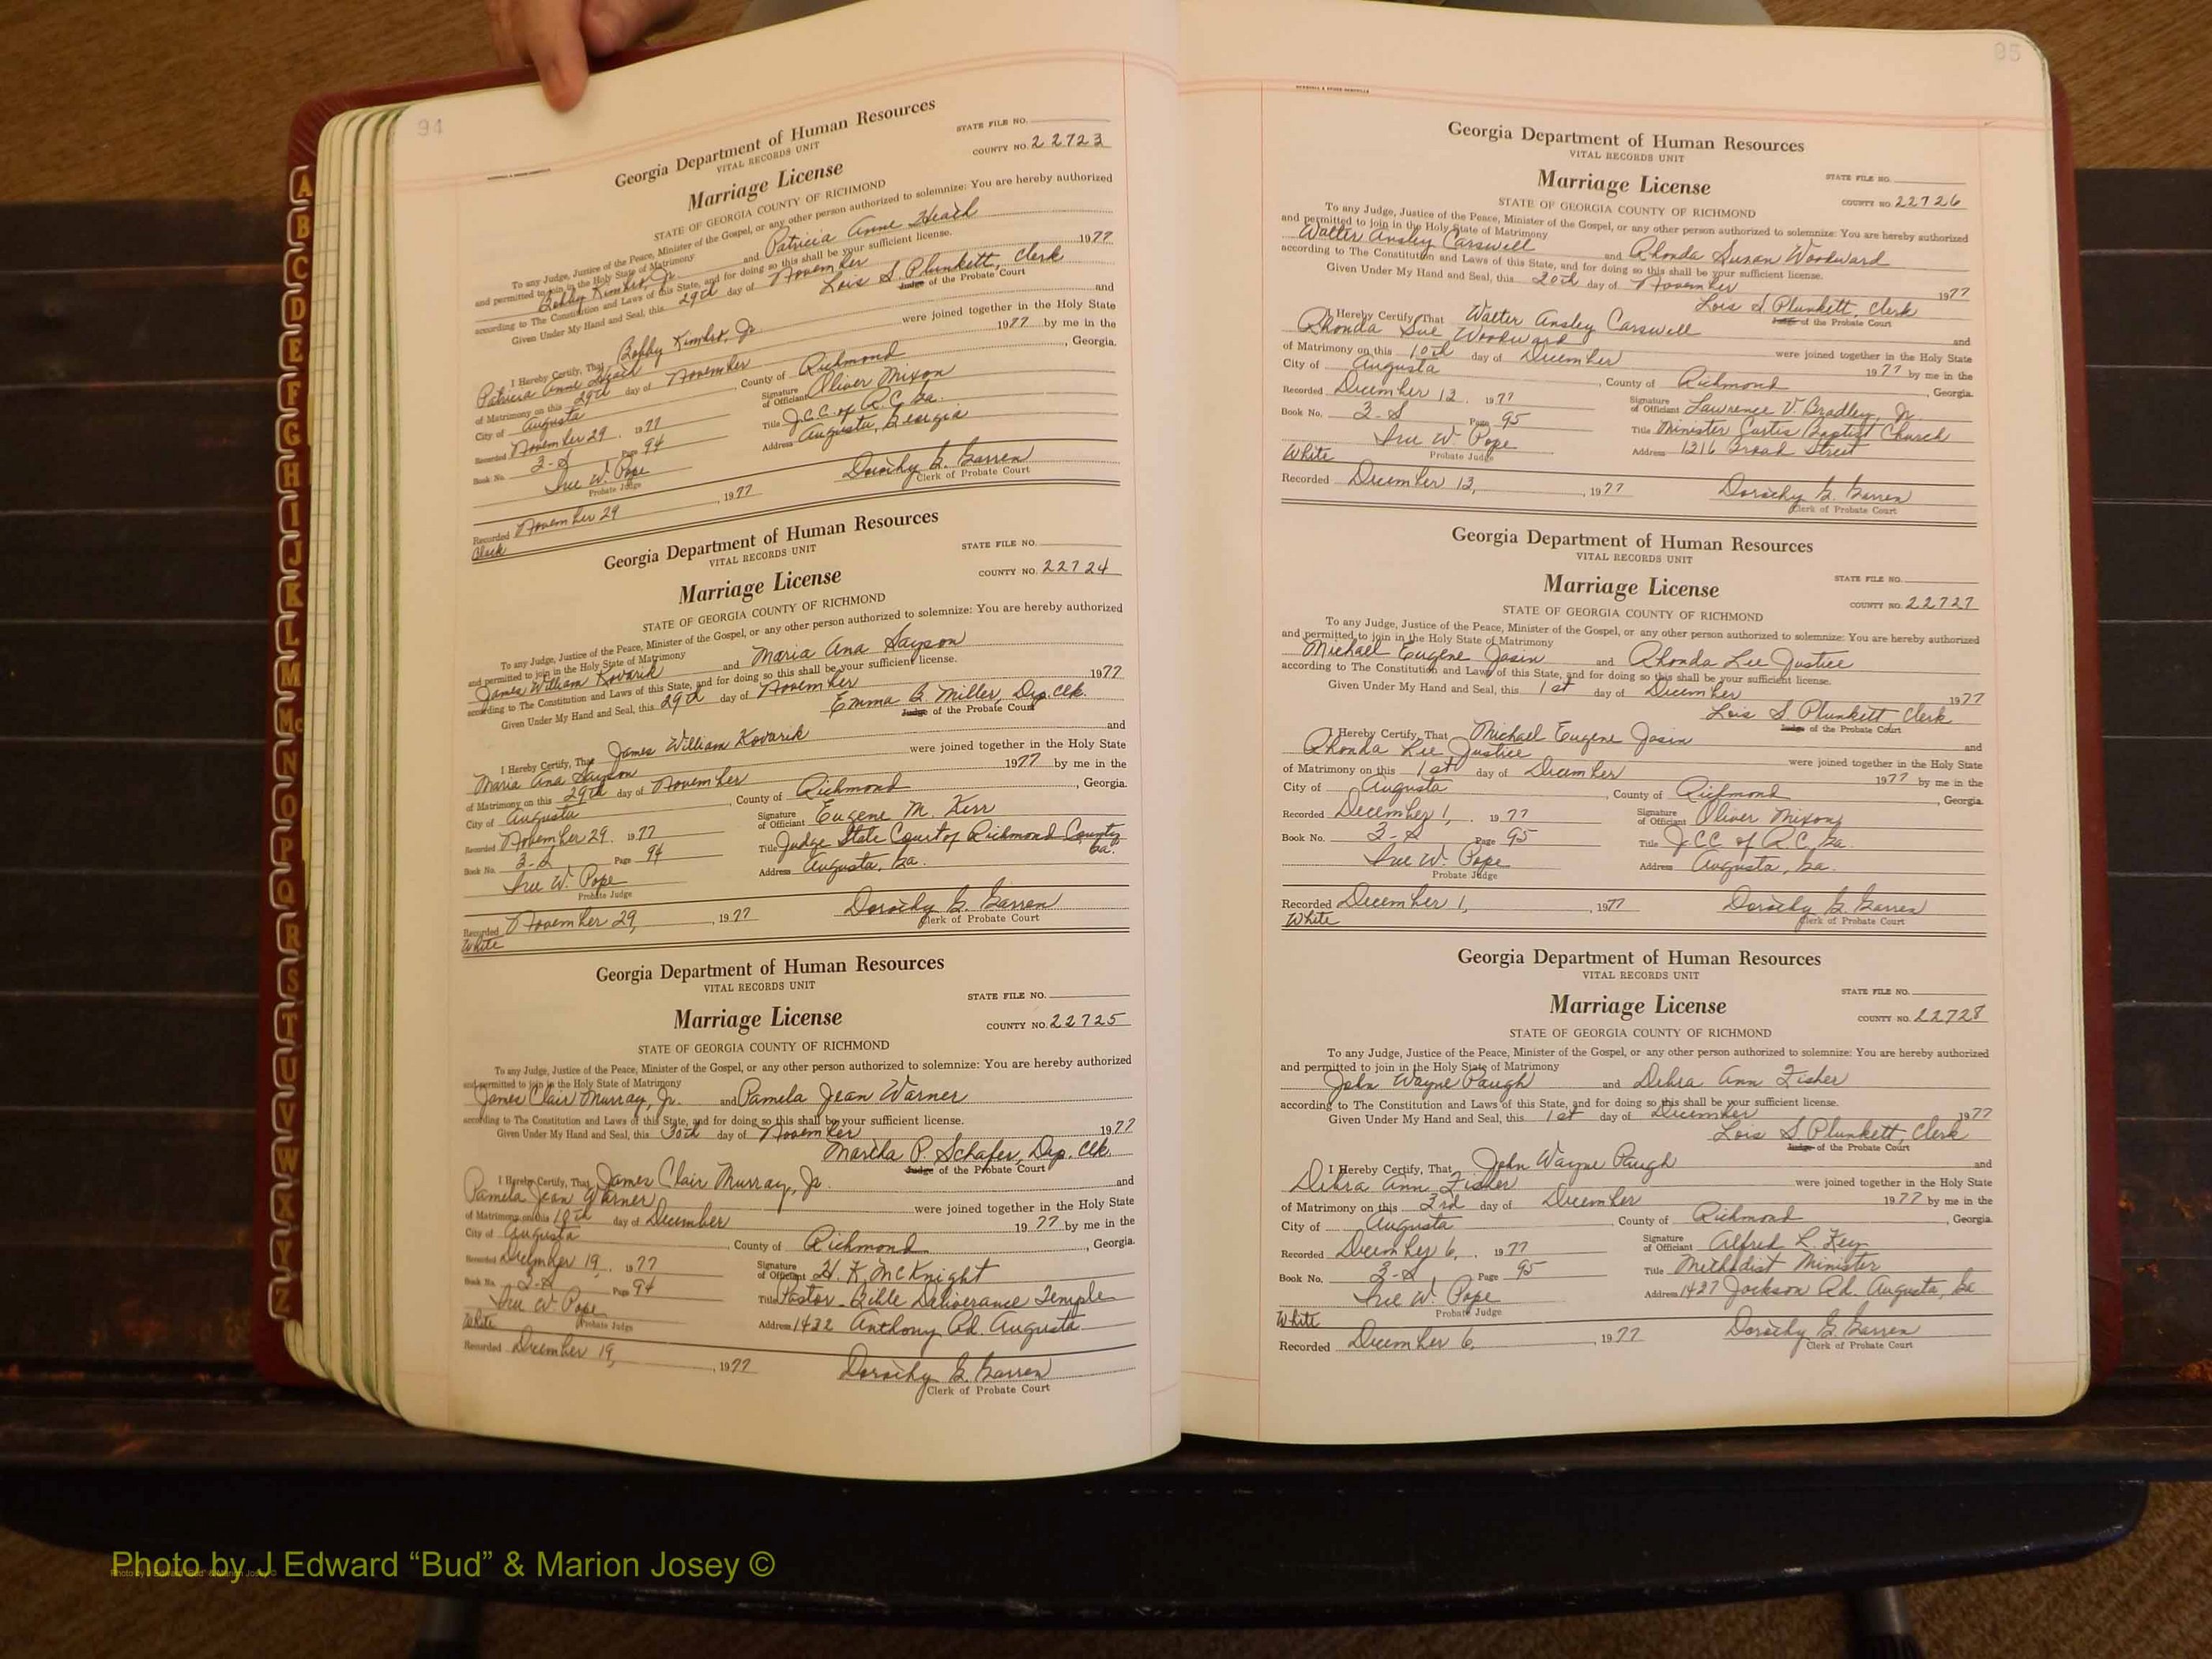 94
Georgia Department of Human Resources
VITAL RECORDS UNIT
STATE FILE NO.
Marriage License
COUNTY NO. 22723
STATE OF GEORGIA COUNTY OF RICHMOND
To any Judge, Justice of the Peace, Minister of the Gospel, or any other person authorized to solemnize: You are hereby authorized
and permitted to join in the Holy State of Matrimony
Bobby Kimbro, Jr. and Patricia Anne Heath
according to The Constitution and Laws of this State, and for doing so this shall be your sufficient license.
Given Under My Hand and Seal, this 29th day of November 1977
Lois S. Plunkett, Clerk
Judge of the Probate Court
I Hereby Certify, That Bobby Kimbro, Jr. and
Patricia Anne Heath were joined together in the Holy State
of Matrimony on this 29th day of November 1977 by me in the
City of Augusta, County of Richmond, Georgia.
Recorded November 29, 1977 Signature of Officiant Oliver Mixon
Book No. 3-S Page 94 Title J.C.C. of R.C. Ga.
Address Augusta, Georgia
Probate Judge
Recorded November 29, 1977 Dorothy G. Garren
Clerk of Probate Court
Georgia Department of Human Resources
VITAL RECORDS UNIT
STATE FILE NO.
Marriage License
COUNTY NO. 22724
STATE OF GEORGIA COUNTY OF RICHMOND
To any Judge, Justice of the Peace, Minister of the Gospel, or any other person authorized to solemnize: You are hereby authorized
and permitted to join in the Holy State of Matrimony
James William Kovarik and Maria Ana
according to The Constitution and Laws of this State, and for doing so this shall be your sufficient license.
Given Under My Hand and Seal, this 29th day of November 1977
Emma B. Miller, Dep. Clk.
Judge of the Probate Court
I Hereby Certify, That James William Kovarik and
Maria Ana were joined together in the Holy State
of Matrimony on this 29th day of November 1977 by me in the
City of Augusta, County of Richmond, Georgia.
Recorded November 29. 1977 Signature of Officiant Eugene M. Kerr
Book No. 3-S Page 94 Title Judge State Court of Richmond County Ga.
W. Pope Address Augusta, Ga.
Probate Judge
Recorded November 29, 1977 Dorothy G. Garren
White Clerk of Probate Court
Georgia Department of Human Resources
VITAL RECORDS UNIT
STATE FILE NO.
Marriage License
COUNTY NO. 22725
STATE OF GEORGIA COUNTY OF RICHMOND
To any Judge, Justice of the Peace, Minister of the Gospel, or any other person authorized to solemnize: You are hereby authorized
and permitted to join in the Holy State of Matrimony
James Clair Murray, Jr. and Pamela Jean Warner
according to The Constitution and Laws of this State, and for doing so this shall be your sufficient license.
Given Under My Hand and Seal, this 30th day of November 1977
Martha P. Schafer, Dep. Clk.
Judge of the Probate Court
I Hereby Certify, That James Clair Murray, Jr. and
Pamela Jean Warner were joined together in the Holy State
of Matrimony on this day of December 1977 by me in the
City of Augusta, County of Richmond, Georgia.
Recorded December 19, 1977 Signature of Officiant H. K. McKnight
Book No. 3-S Page 94 Title Pastor - Bible Deliverance Temple
W. Pope Address 1432 Anthony Rd. Augusta
White Probate Judge
Recorded December 19, 1977 Dorothy G. Garren
Clerk of Probate Court
95
Georgia Department of Human Resources
VITAL RECORDS UNIT
STATE FILE NO.
Marriage License
COUNTY NO. 22726
STATE OF GEORGIA COUNTY OF RICHMOND
To any Judge, Justice of the Peace, Minister of the Gospel, or any other person authorized to solemnize: You are hereby authorized
and permitted to join in the Holy State of Matrimony
Walter Ansley Carswell and Rhonda Susan Woodward
according to The Constitution and Laws of this State, and for doing so this shall be your sufficient license.
Given Under My Hand and Seal, this day of November 1977
Lois S. Plunkett, Clerk
Judge of the Probate Court
I Hereby Certify, That Walter Ansley Carswell and
Rhonda Sue Woodward were joined together in the Holy State
of Matrimony on this 10th day of December 1977 by me in the
City of Augusta, County of Richmond, Georgia.
Recorded December 13, 1977 Signature of Officiant Lawrence V. Bradley, Jr.
Book No. 3-S Page 95 Title Minister Curtis Baptist Church
W. Pope Address 1316 Broad Street
White Probate Judge
Recorded December 13, 1977 Dorothy G. Garren
Clerk of Probate Court
Georgia Department of Human Resources
VITAL RECORDS UNIT
STATE FILE NO.
Marriage License
COUNTY NO. 22727
STATE OF GEORGIA COUNTY OF RICHMOND
To any Judge, Justice of the Peace, Minister of the Gospel, or any other person authorized to solemnize: You are hereby authorized
and permitted to join in the Holy State of Matrimony
Michael Eugene Josin and Rhonda Lee Justice
according to The Constitution and Laws of this State, and for doing so this shall be your sufficient license.
Given Under My Hand and Seal, this 1st day of December 1977
Lois S. Plunkett, Clerk
Judge of the Probate Court
I Hereby Certify, That Michael Eugene Josin and
Rhonda Lee Justice were joined together in the Holy State
of Matrimony on this 1st day of December 1977 by me in the
City of Augusta, County of Richmond, Georgia.
Recorded December 1, 1977 Signature of Officiant Oliver Mixon
Book No. 3-S Page 95 Title J.C.C. of R.C. Ga.
W. Pope Address Augusta, Ga.
Probate Judge
Recorded December 1, 1977 Dorothy G. Garren
White Clerk of Probate Court
Georgia Department of Human Resources
VITAL RECORDS UNIT
STATE FILE NO.
Marriage License
COUNTY NO. 22728
STATE OF GEORGIA COUNTY OF RICHMOND
To any Judge, Justice of the Peace, Minister of the Gospel, or any other person authorized to solemnize: You are hereby authorized
and permitted to join in the Holy State of Matrimony
John Wayne Paugh and Debra Ann Fisher
according to The Constitution and Laws of this State, and for doing so this shall be your sufficient license.
Given Under My Hand and Seal, this 1st day of December 1977
Lois S. Plunkett, Clerk
Judge of the Probate Court
I Hereby Certify, That John Wayne Paugh and
Debra Ann Fisher were joined together in the Holy State
of Matrimony on this 3rd day of December 1977 by me in the
City of Augusta, County of Richmond, Georgia.
Recorded December 6, 1977 Signature of Officiant Alfred L.
Book No. 3-S Page 95 Title Methodist Minister
W. Pope Address 1427 Jackson Rd. Augusta, Ga
White Probate Judge
Recorded December 6, 1977 Dorothy G. Garren
Clerk of Probate Court
A
B
C
D
E
F
G
H
I
J
K
L
M
Mc
N
O
P
Q
R
S
T
U
V
W
X
Y
Z
Photo by J Edward “Bud” & Marion Josey ©